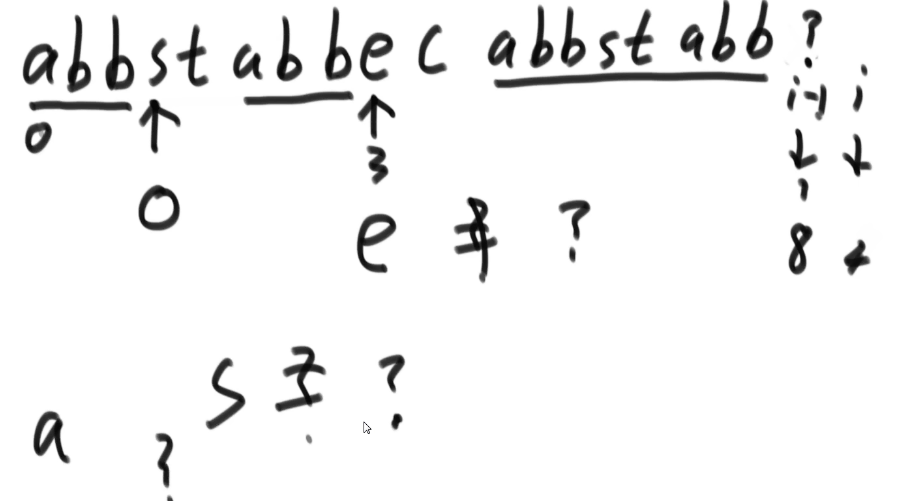 abbst abbe c abbst abb ?
i-1 i
0 3
0 e ≠ ? 8
s ?
a ?